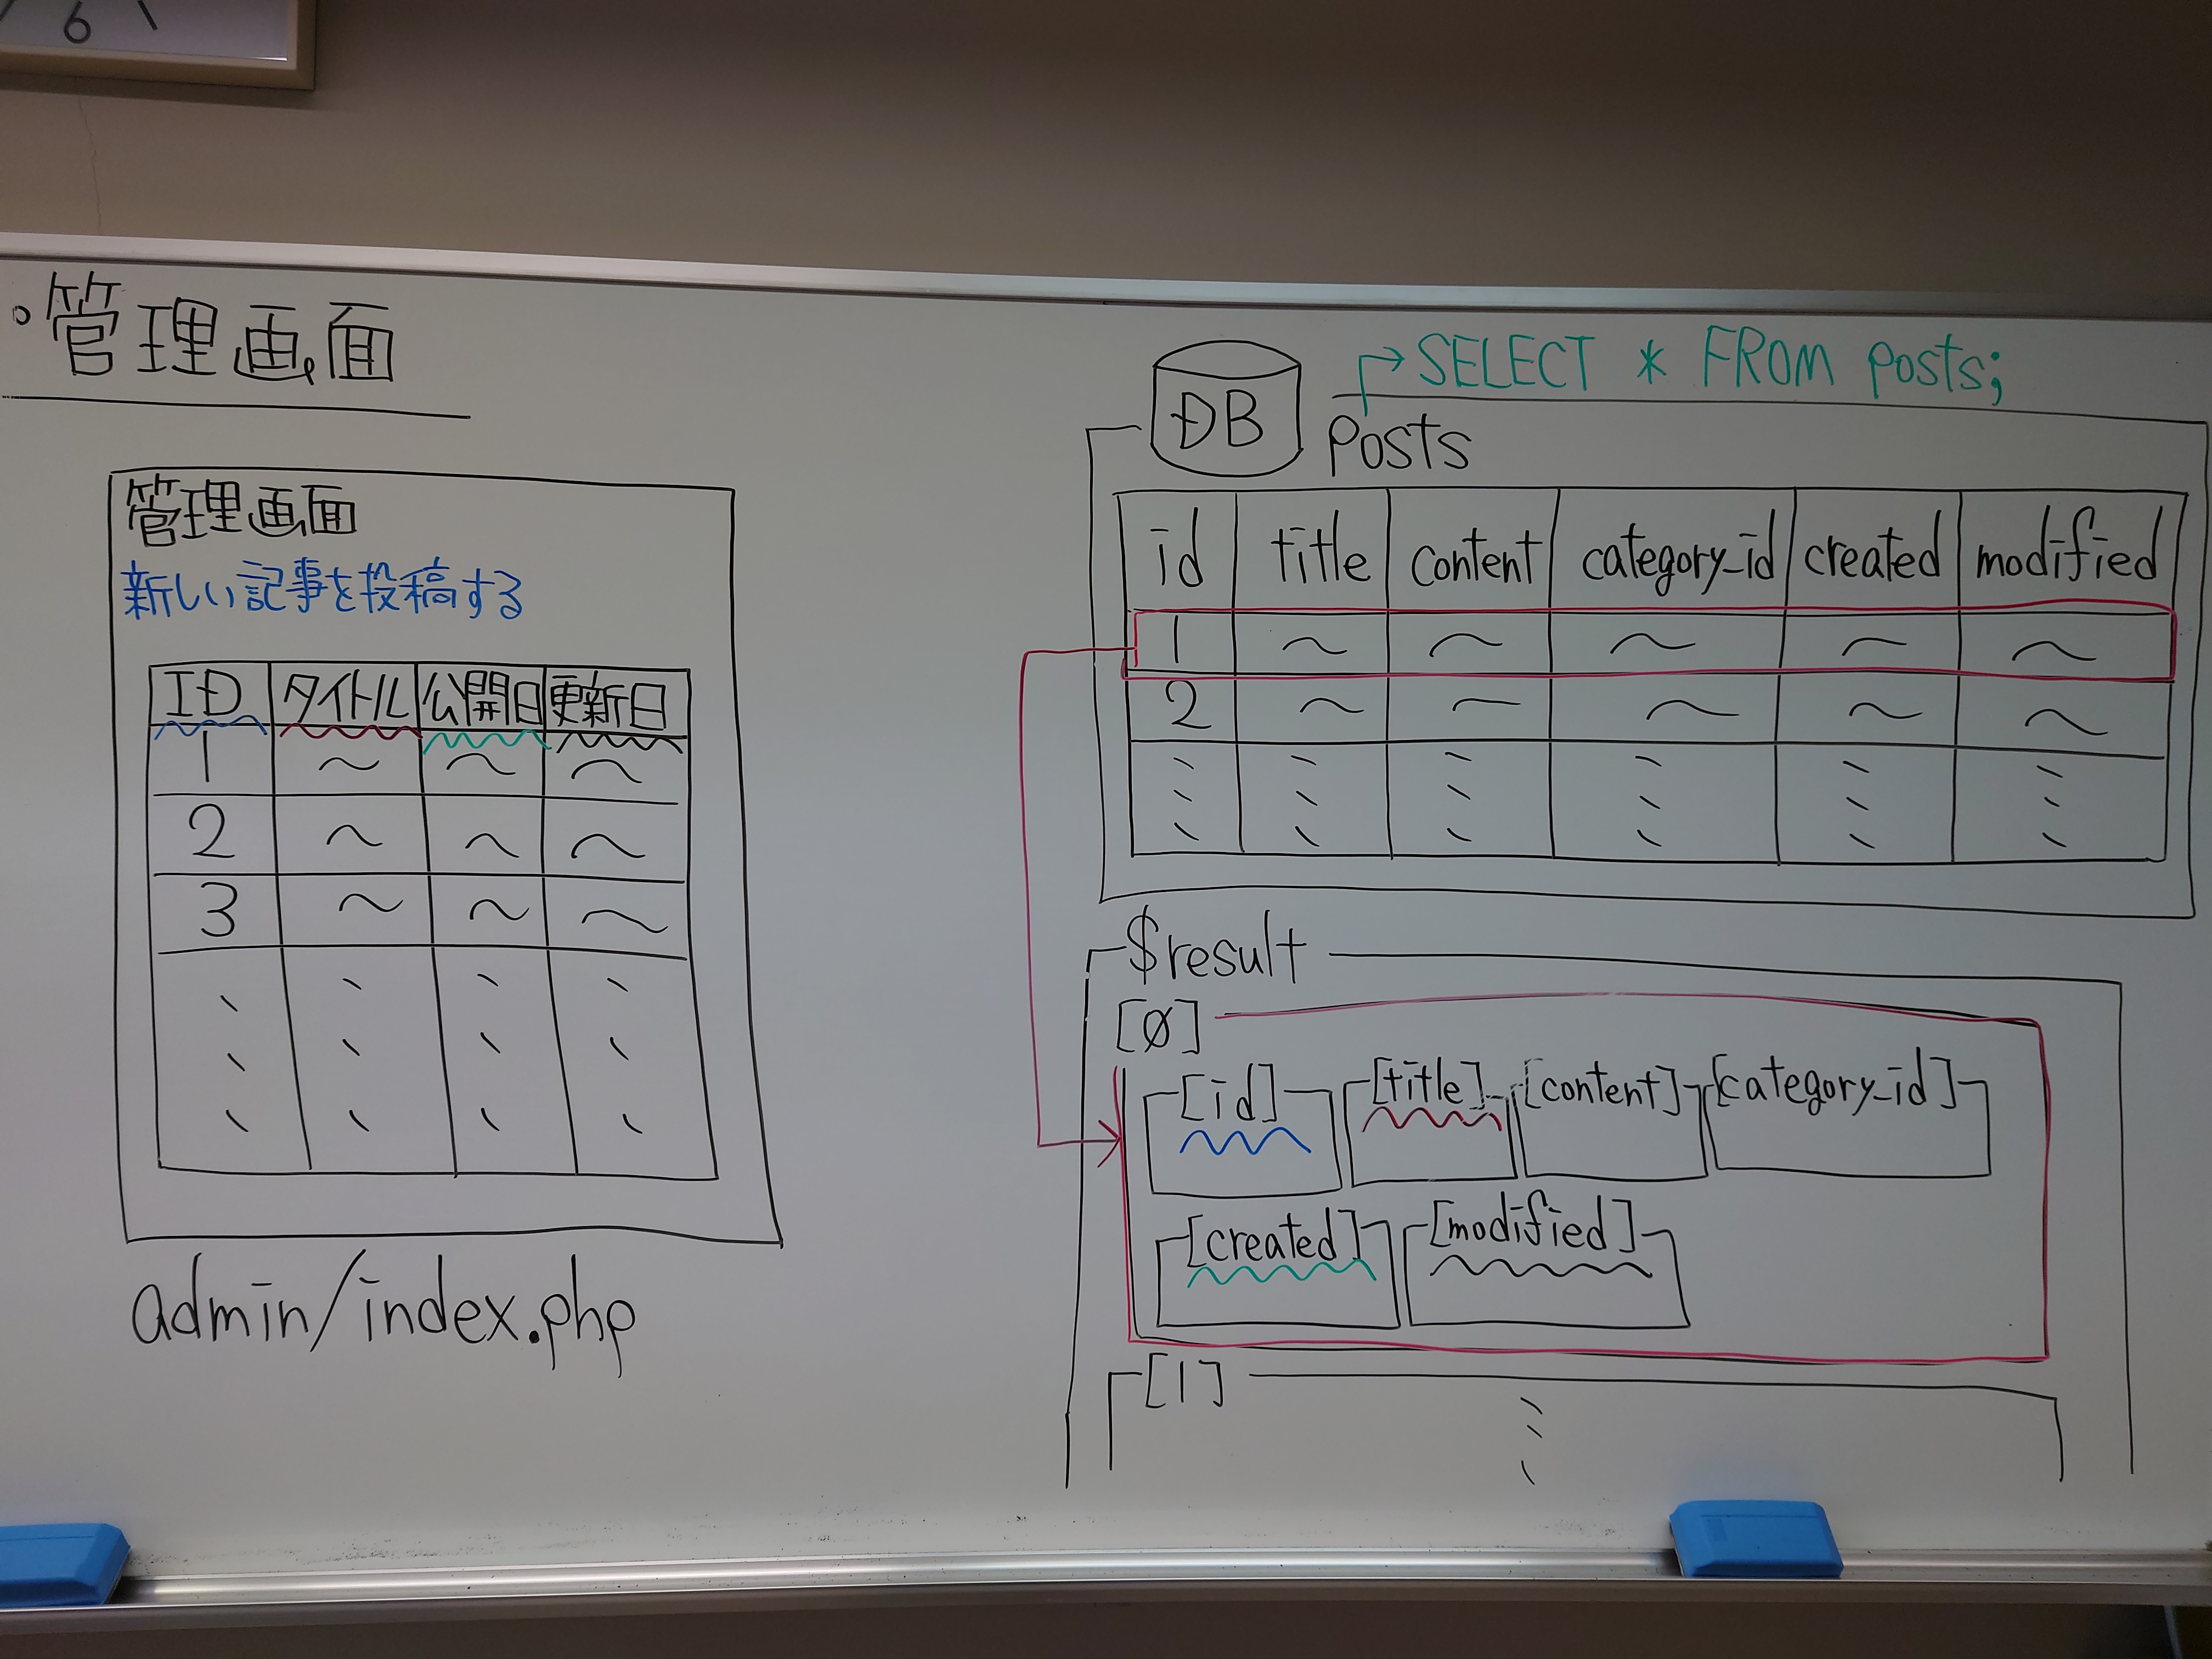 6
・管理画面
管理画面
新しい記事を投稿する
ID タイトル 公開日 更新日
1 〜 〜 〜
2 〜 〜 〜
3 〜 〜 〜
admin/index.php
DB
→SELECT * FROM posts;
posts
id title content category_id created modified
1 〜 〜 〜 〜 〜
2 〜 〜 〜 〜 〜
$result
[0]
[id] [title] [content] [category_id]
[created] [modified]
[1]